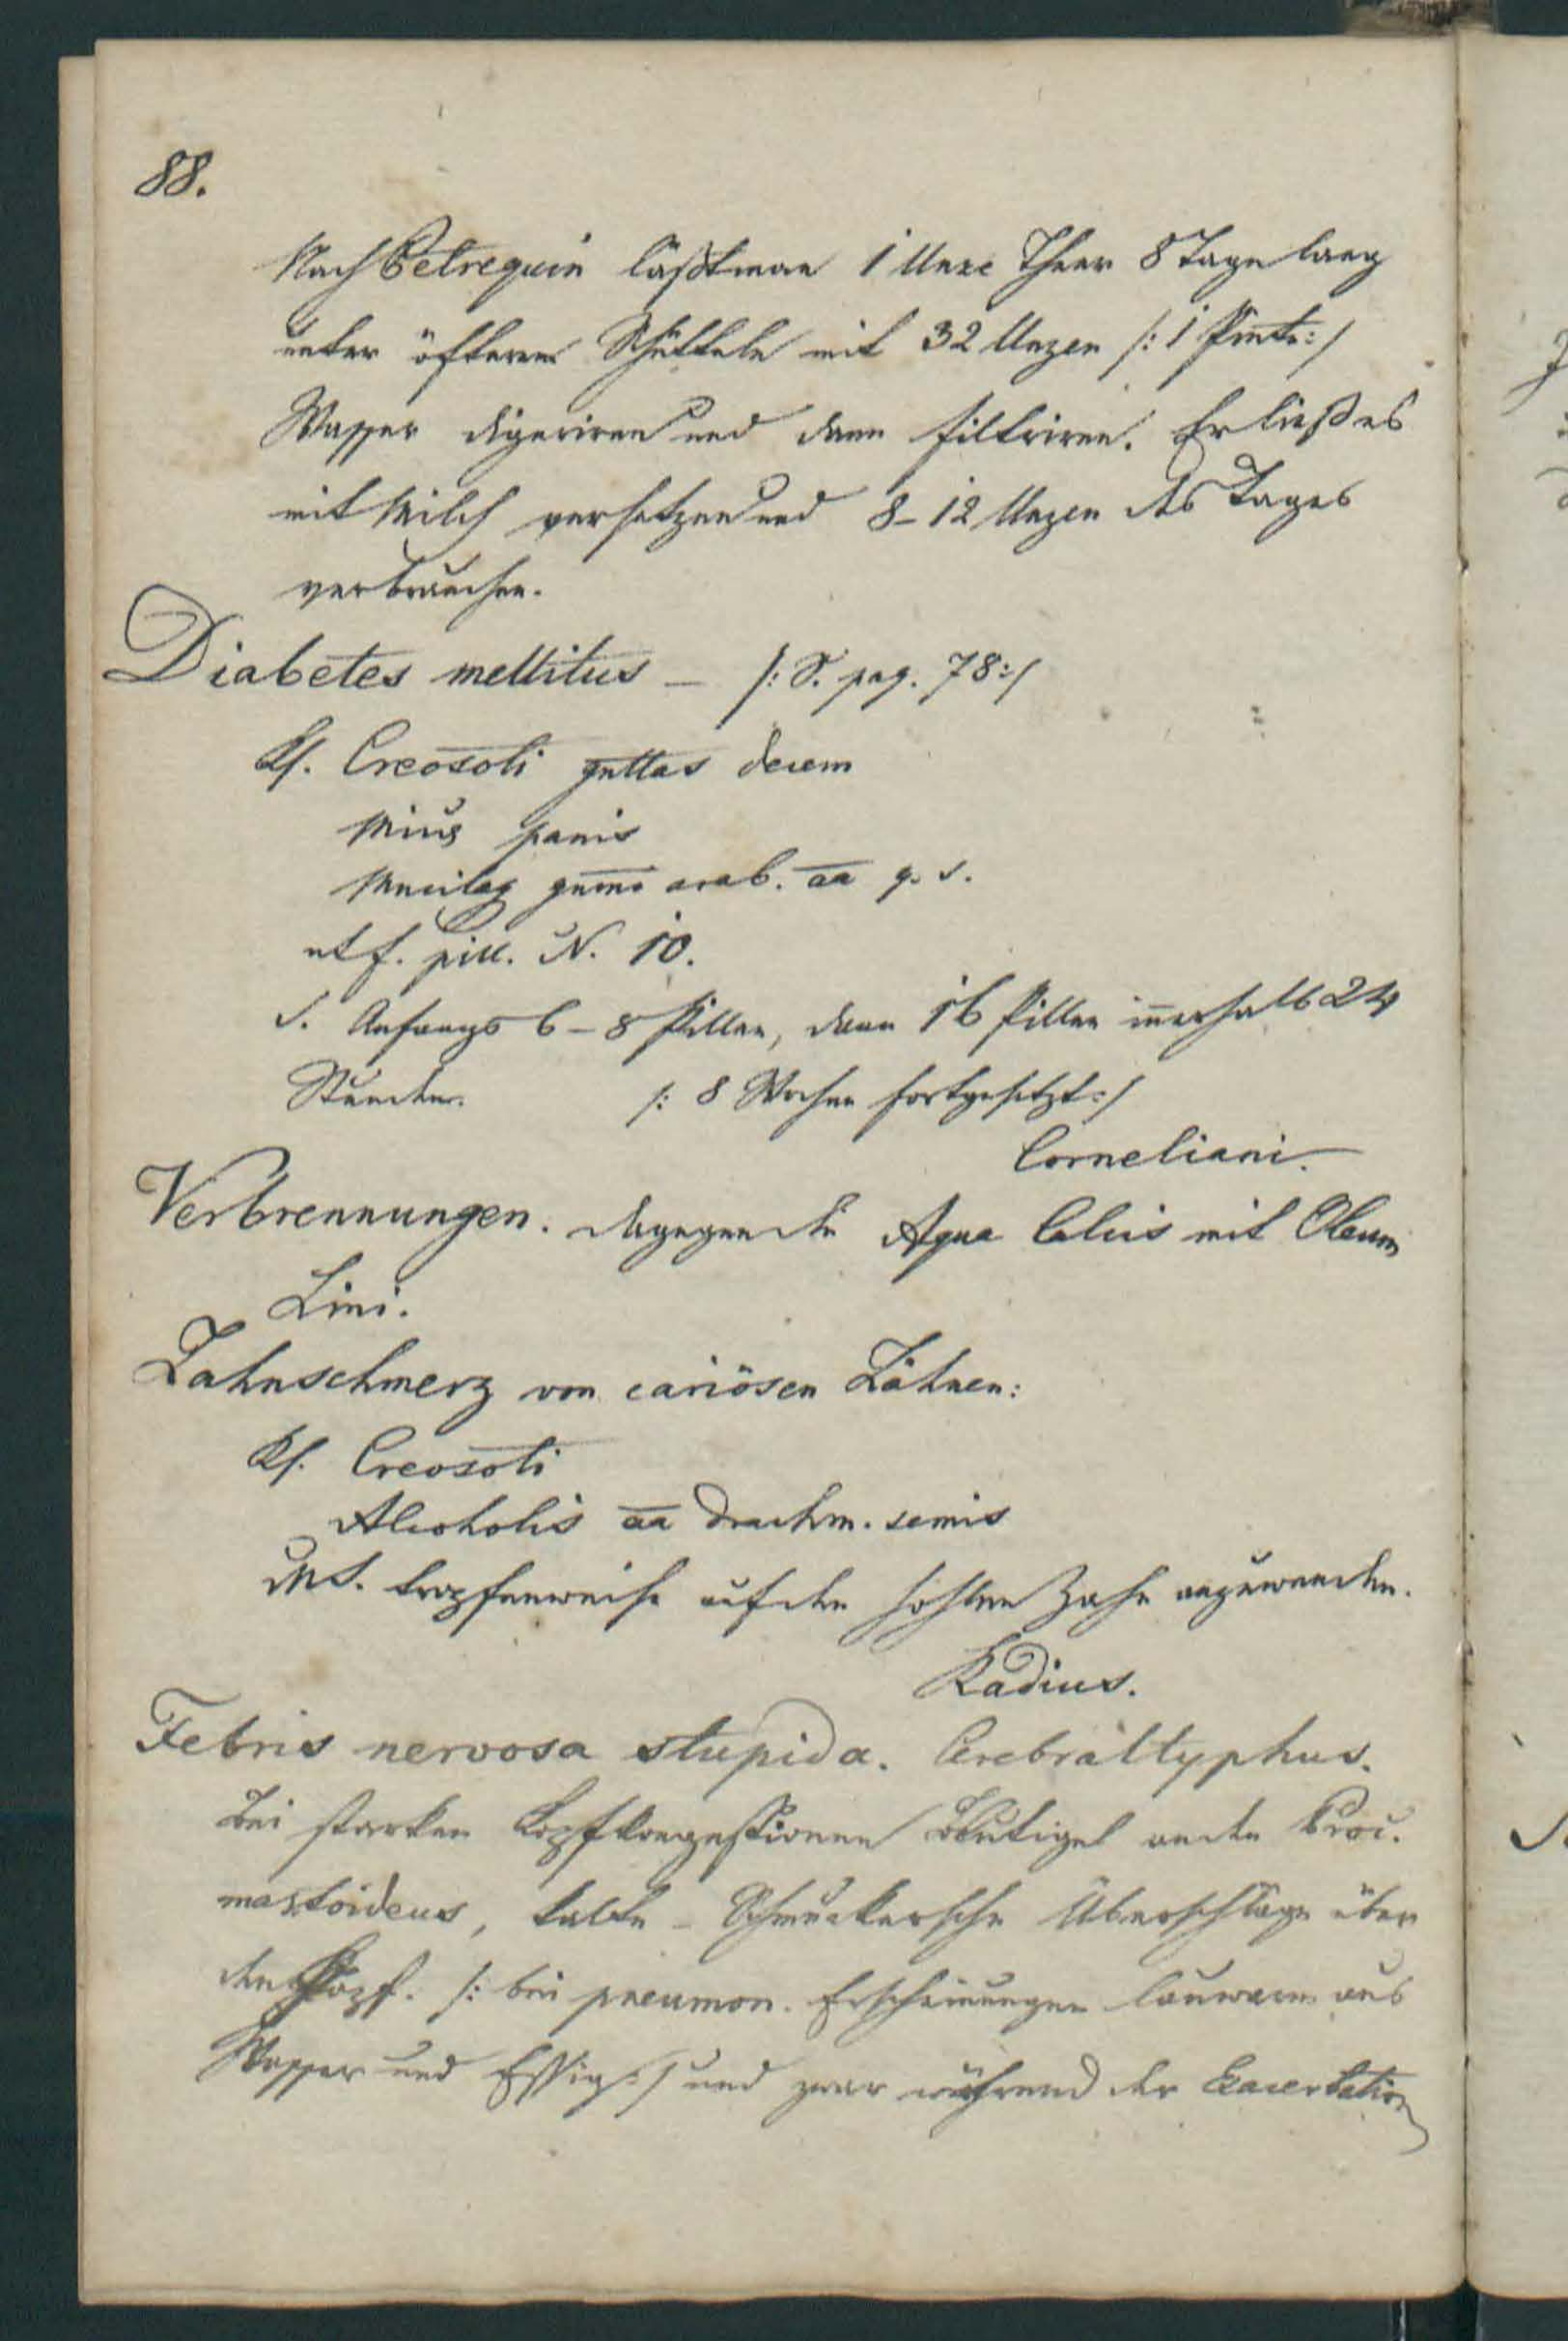 88.
Nach Petrequin läßt man 1 Unze Theer 8 Tage lang
unter öfterem Schütteln mit 32 Unzen /: 1 Pinte :/
Wasser digeriren und dann filtriren. Er ließ es
mit Milch versetzen und 8-12 Unzen des Tages
verbrauchen.
Diabetes mellitus — /: S. pag. 78 :/
Rf. Creosoti guttas decem
Micae panis
Mucilag gumi arab. aa q. s.
ut f. pill. N. 10.
S. Anfangs 6-8 Pillen, dann 16 Pillen innerhalb 24
Stunden. /: 8 Wochen fortgesetzt :/
Corneliani.
Verbrennungen. dagegen die Aqua Calcis mit Oleum
Lini.
Zahnschmerz von cariösen Zähnen:
Rf. Creosoti
Alcoholis aa drachm. semis
MS. tropfenweise auf den hohlen Zahn anzuwenden.
Radius.
Febris nervosa stupida. Cerebraltyphus.
Bei starken Kopfkongestionen Blutigel an den Proc.
mastoideus, kalte - Schmuckersche Überschläge über
den Kopf. /: bei pneumon. Erscheinungen lauwarm aus
Wasser und Essig :/ und zwar während der Exacerbation